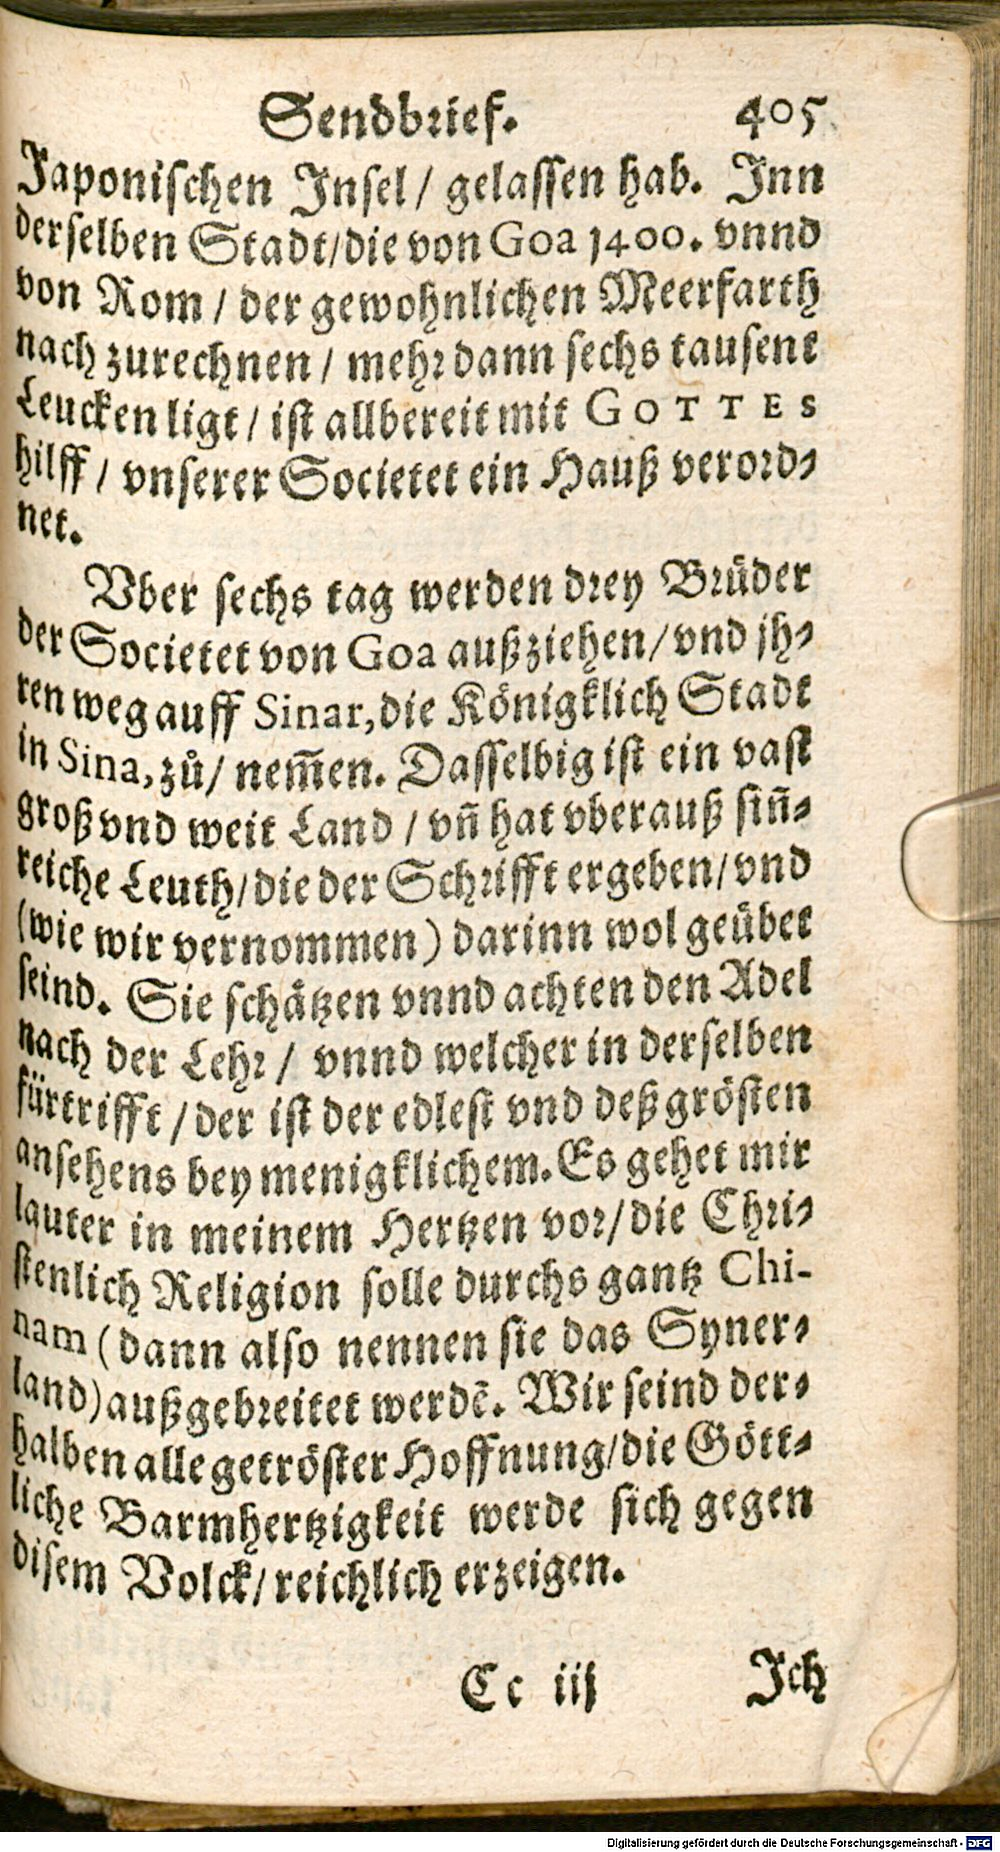 Sendbrief. 405
Japonischen Insel/ gelassen hab. Inn
derselben Stadt/die von Goa 1400. vnnd
von Rom / der gewohnlichen Meerfarth
nach zurechnen / mehr dann sechs tausent
Leucken ligt / ist allbereit mit GOTTES
hilff / vnserer Societet ein Hauß verord⸗
net.
Vber sechs tag werden drey Brüder
der Societet von Goa außziehen/vnd jh⸗
ren weg auff Sinar, die Königklich Stadt
in Sina, zů/ nem̃en. Dasselbig ist ein vast
groß vnd weit Land / vñ hat vberauß siñ⸗
reiche Leuth/die der Schrifft ergeben/vnd
(wie wir vernommen) darinn wol geübet
seind. Sie schätzen vnnd achten den Adel
nach der Lehr / vnnd welcher in derselben
fürtrifft /der ist der edlest vnd deß grösten
ansehens bey menigklichem. Es gehet mir
lauter in meinem Hertzen vor/die Chri⸗
stenlich Religion solle durchs gantz Chi-
nam (dann also nennen sie das Syner⸗
land) außgebreitet werdẽ. Wir seind der⸗
halben alle getröster Hoffnung/die Gött⸗
liche Barmhertzigkeit werde sich gegen
disem Volck/ reichlich erzeigen.
Cc iij Ich
Digitalisierung gefördert durch die Deutsche Forschungsgemeinschaft - DFG